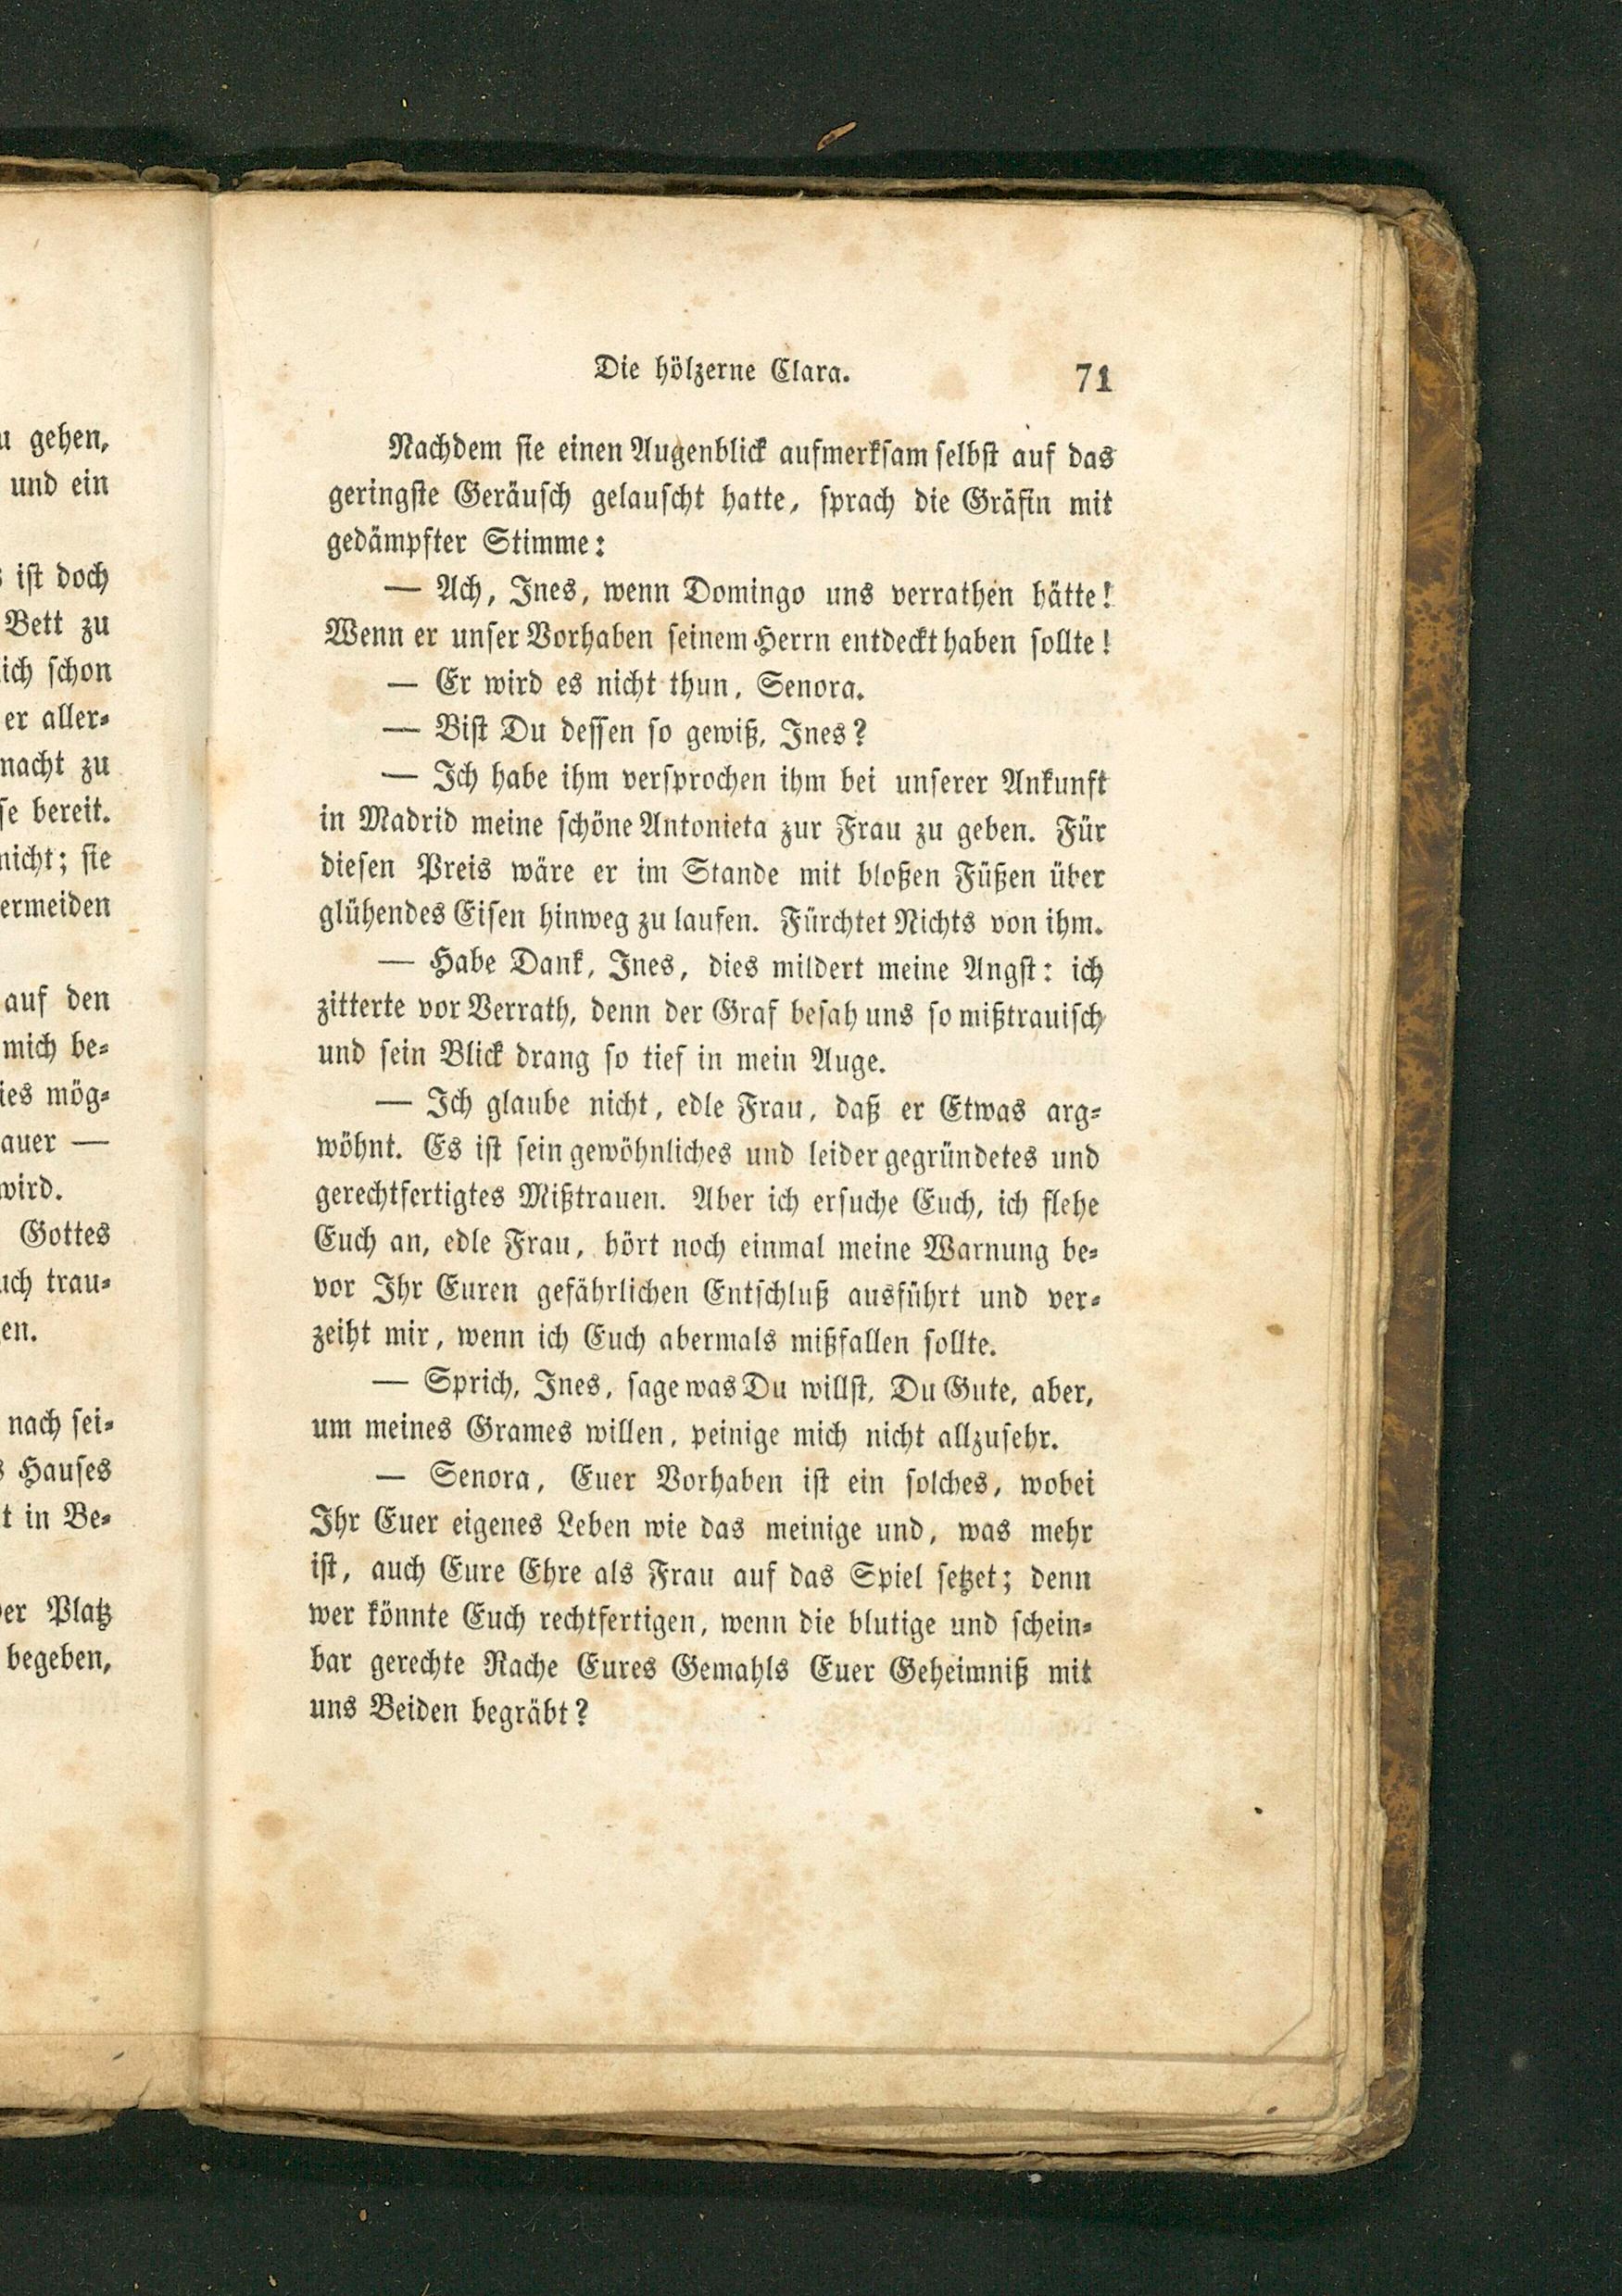 u gehen,
und ein
ist doch
Bett zu
ich schon
er aller-
macht zu
se bereit.
nicht; sie
ermeiden
auf den
mich be-
ies mög-
auer —
wird.
Gottes
uch trau-
en.
nach sei-
s Hauses
t in Be-
er Platz
begeben,
Die hölzerne Clara. 71
Nachdem sie einen Augenblick aufmerksam selbst auf das
geringste Geräusch gelauscht hatte, sprach die Gräfin mit
gedämpfter Stimme:
— Ach, Ines, wenn Domingo uns verrathen hätte!
Wenn er unser Vorhaben seinem Herrn entdeckt haben sollte!
— Er wird es nicht thun, Senora.
— Bist Du dessen so gewiß, Ines?
— Ich habe ihm versprochen ihm bei unserer Ankunft
in Madrid meine schöne Antonieta zur Frau zu geben. Für
diesen Preis wäre er im Stande mit bloßen Füßen über
glühendes Eisen hinweg zu laufen. Fürchtet Nichts von ihm.
— Habe Dank, Ines, dies mildert meine Angst: ich
zitterte vor Verrath, denn der Graf besah uns so mißtrauisch
und sein Blick drang so tief in mein Auge.
— Ich glaube nicht, edle Frau, daß er Etwas arg-
wöhnt. Es ist sein gewöhnliches und leider gegründetes und
gerechtfertigtes Mißtrauen. Aber ich ersuche Euch, ich flehe
Euch an, edle Frau, hört noch einmal meine Warnung be-
vor Ihr Euren gefährlichen Entschluß ausführt und ver-
zeiht mir, wenn ich Euch abermals mißfallen sollte.
— Sprich, Ines, sage was Du willst, Du Gute, aber,
um meines Grames willen, peinige mich nicht allzusehr.
— Senora, Euer Vorhaben ist ein solches, wobei
Ihr Euer eigenes Leben wie das meinige und, was mehr
ist, auch Eure Ehre als Frau auf das Spiel setzet; denn
wer könnte Euch rechtfertigen, wenn die blutige und schein-
bar gerechte Rache Eures Gemahls Euer Geheimniß mit
uns Beiden begräbt?